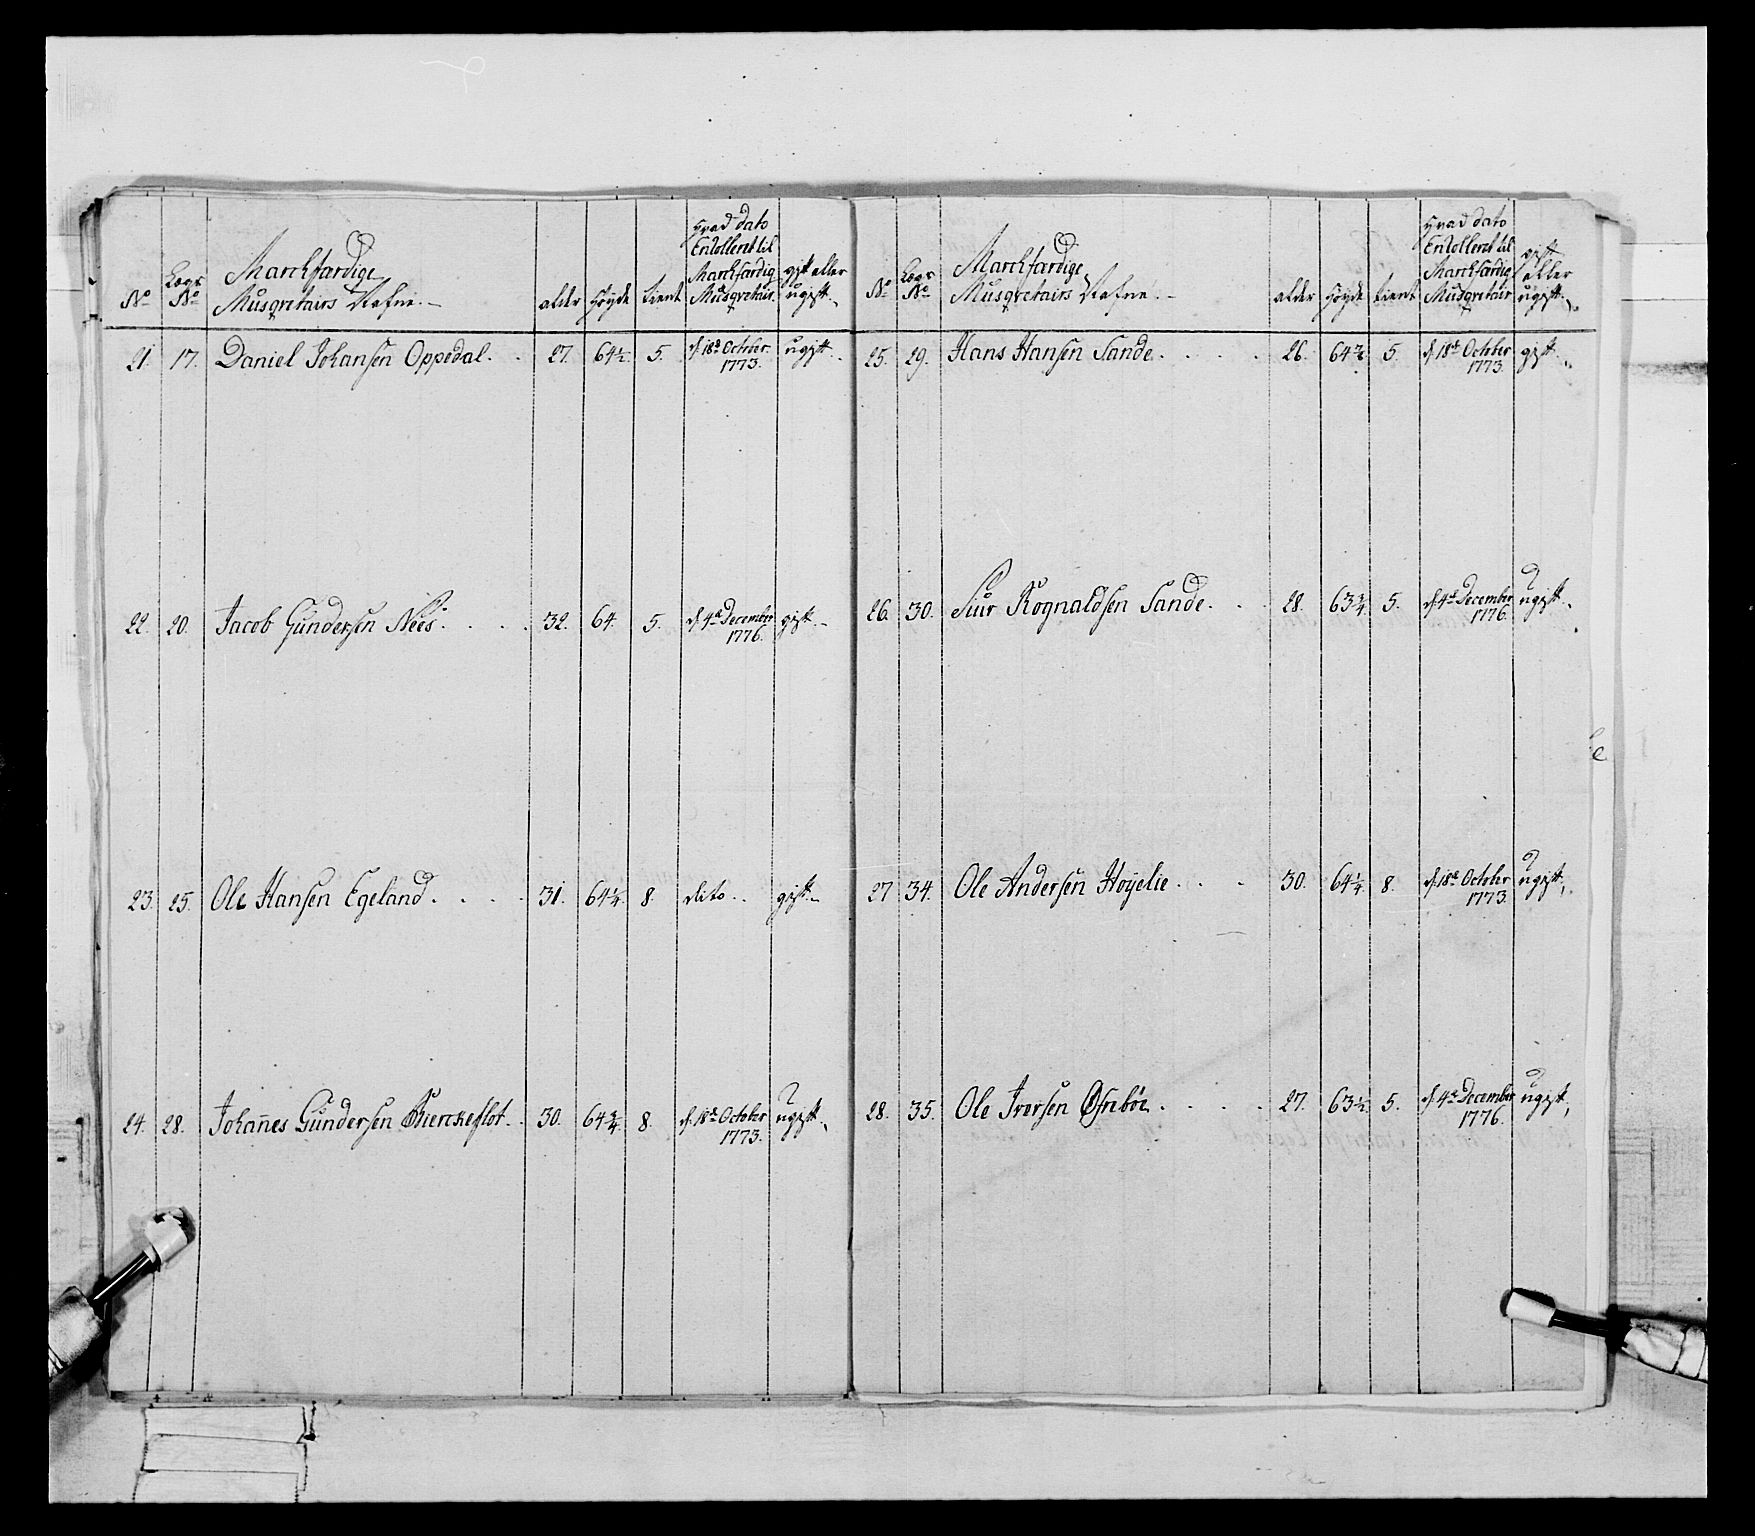 No
Lægs No
Marchfærdige
Musqvetairs Nafne.
alder
Høyde
tient
hvad dato
Enrolleret til
Marchfærdig
Musqvetair.
gift eller
ugift.
21. 17. Daniel Johansen Oppedal. . 27. 64½. 5. d. 18de October 1773. ugift.
22. 20. Jacob Gundersen Nees. . . . 32. 64. 5. d. 4de December 1776. gift.
23. 25. Ole Hansen Egeland. . . . 31. 64¼. 8. dito. . gift.
24. 28. Johannes Gundersen Bierckeflot. . 30. 64¾. 8. d. 18de October 1773. ugift.
No
Lægs No
Marchfærdige
Musqvetairs Nafne.
alder
Høyde
tient
hvad dato
Enrolleret til
Marchfærdig
Musqvetair
gift
eller
ugift.
25. 29. Hans Hansen Sande. . . . 26. 5. d. 18de October 1773. gift.
26. 30. Siur Rognaldsen Sande. . . 28. 63¾. 5. d. 4de December 1776. ugift.
27 34. Ole Andersen Høyelie. . . . 30. 64¼. 8. d. 18de October 1773. ugift.
28. 35. Ole Iversen . . . 27. 63½. 5. d. 4de December 1776. ugift.